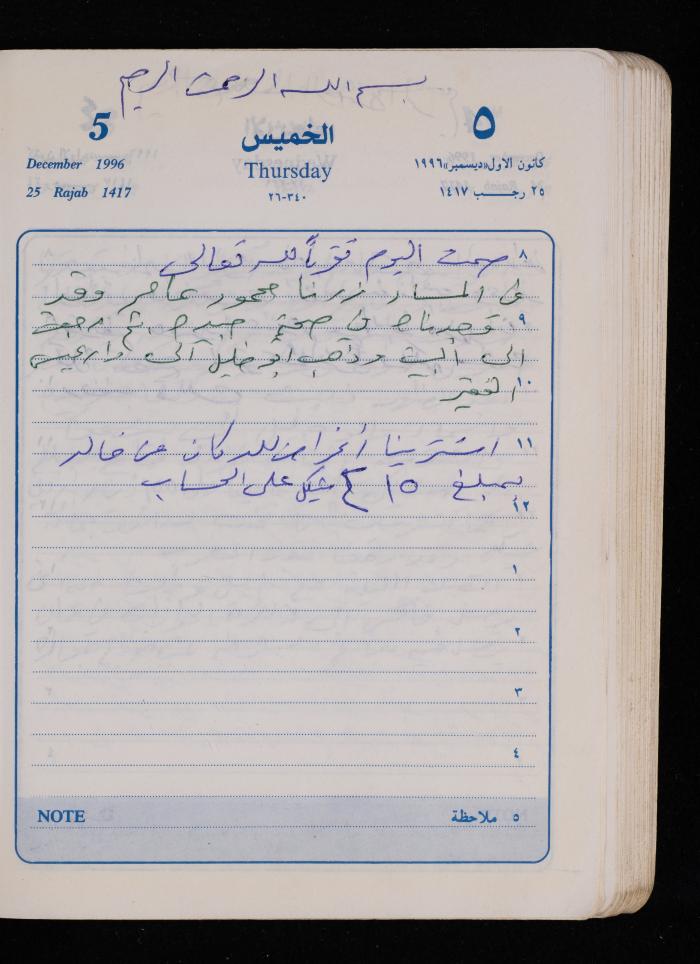 بسم الله الرحمن الرحيم
5 الخميس ٥
December 1996 Thursday كانون الاول «ديسمبر» ١٩٩٦
25 Rajab 1417 ٣٤٠-٢٦ ٢٥ رجب ١٤١٧
٨ صمت اليوم تقرباً لله تعالى
في المساء زرنا محمود عامر وقد
٩ وجدناه في صحة جيدة ثم رجعت
الى البيت وذهب أبو خليل الى
١٠ الفقير
١١ اشترينا أغراض للدكان من خالد
بمبلغ ١٥ شيكل على الحساب
١٢
١
٢
٣
٤
NOTE ٥ ملاحظة